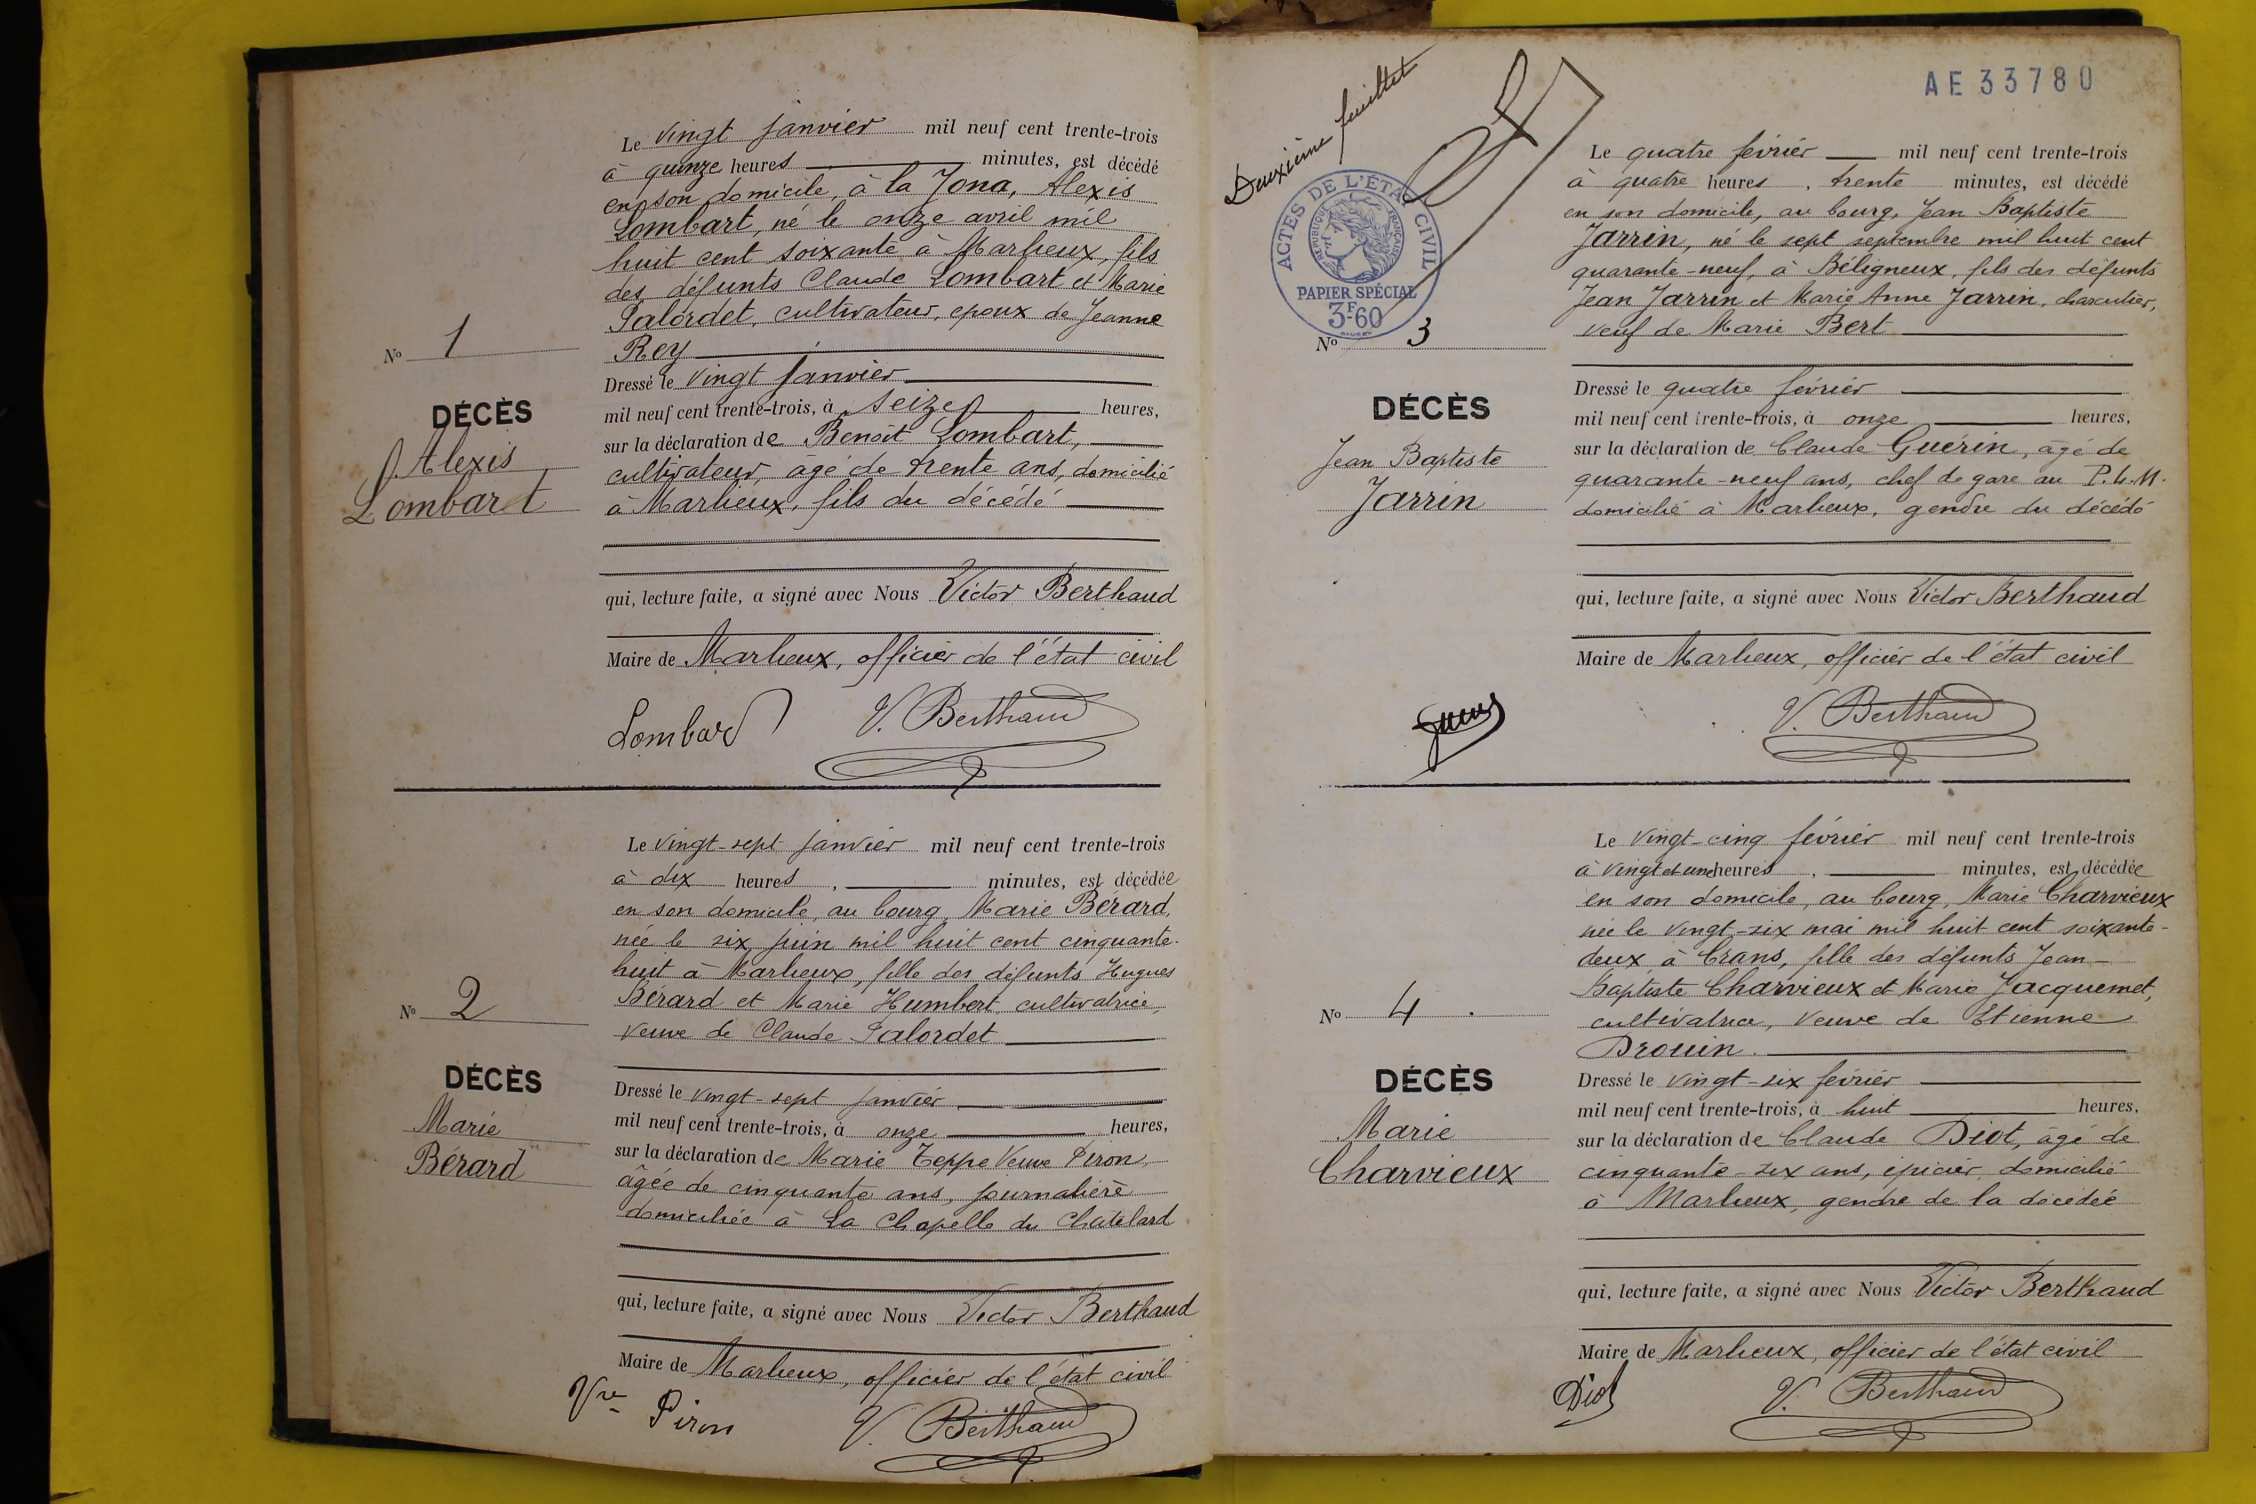 Le vingt janvier mil neuf cent trente-trois
à quinze heures minutes, est décédé
en son domicile, à la Jona, Alexis
Lombart, né le onze avril mil
huit cent soixante à Marlieux, fils
des défunts Claude Lombart et Marie
Palordet, cultivateur, époux de Jeanne
Rey
Nº 1
DÉCÈS
Alexis
Lombart
Dressé le vingt janvier
mil neuf cent trente-trois, à seize heures,
sur la déclaration de Benoît Lombart,
cultivateur, âgé de trente ans, domicilié
à Marlieux, fils du décédé
qui, lecture faite, a signé avec Nous Victor Berthaud
Maire de Marlieux, officier de l'état civil
Lombard V. Berthaud
Le vingt-sept janvier mil neuf cent trente-trois
à dix heures, minutes, est décédée
en son domicile, au bourg, Marie Bérard,
née le six juin mil huit cent cinquante-
huit à Marlieux, fille des défunts Hugues
Bérard et Marie Humbert, cultivatrice,
veuve de Claude Palordet
Nº 2
DÉCÈS
Marie
Bérard
Dressé le vingt-sept janvier
mil neuf cent trente-trois, à onze heures,
sur la déclaration de Marie Teppe Veuve Piron,
âgée de cinquante ans, journalière
domiciliée à La Chapelle du Châtelard
qui, lecture faite, a signé avec Nous Victor Berthaud
Maire de Marlieux, officier de l'état civil
Vve Piron V. Berthaud
AE 33780
Deuxième feuillet
ACTES DE L'ÉTAT CIVIL
RÉPUBLIQUE FRANÇAISE
PAPIER SPÉCIAL
3F60
Le quatre février mil neuf cent trente-trois
à quatre heures, trente minutes, est décédé
en son domicile, au bourg, Jean Baptiste
Jarrin, né le sept septembre mil huit cent
quarante-neuf, à Béligneux, fils des défunts
Jean Jarrin et Marie Anne Jarrin, charcutier,
veuf de Marie Bert
Nº 3
DÉCÈS
Jean Baptiste
Jarrin
Dressé le quatre février
mil neuf cent trente-trois, à onze heures,
sur la déclaration de Claude Guérin, âgé de
quarante-neuf ans, chef de gare au P.L.M.
domicilié à Marlieux, gendre du décédé
qui, lecture faite, a signé avec Nous Victor Berthaud
Maire de Marlieux, officier de l'état civil
V. Berthaud
Le vingt-cinq février mil neuf cent trente-trois
à vingt et une heures, minutes, est décédée
en son domicile, au bourg, Marie Charvieux
née le vingt-six mai mil huit cent soixante-
deux à Crans, fille des défunts Jean-
Baptiste Charvieux et Marie Jacquemet,
cultivatrice, veuve de Etienne
Drouin.
Nº 4
DÉCÈS
Marie
Charvieux
Dressé le vingt-six février
mil neuf cent trente-trois, à huit heures,
sur la déclaration de Claude Diot, âgé de
cinquante-six ans, épicier, domicilié
à Marlieux, gendre de la décédée
qui, lecture faite, a signé avec Nous Victor Berthaud
Maire de Marlieux, officier de l'état civil
Diot V. Berthaud